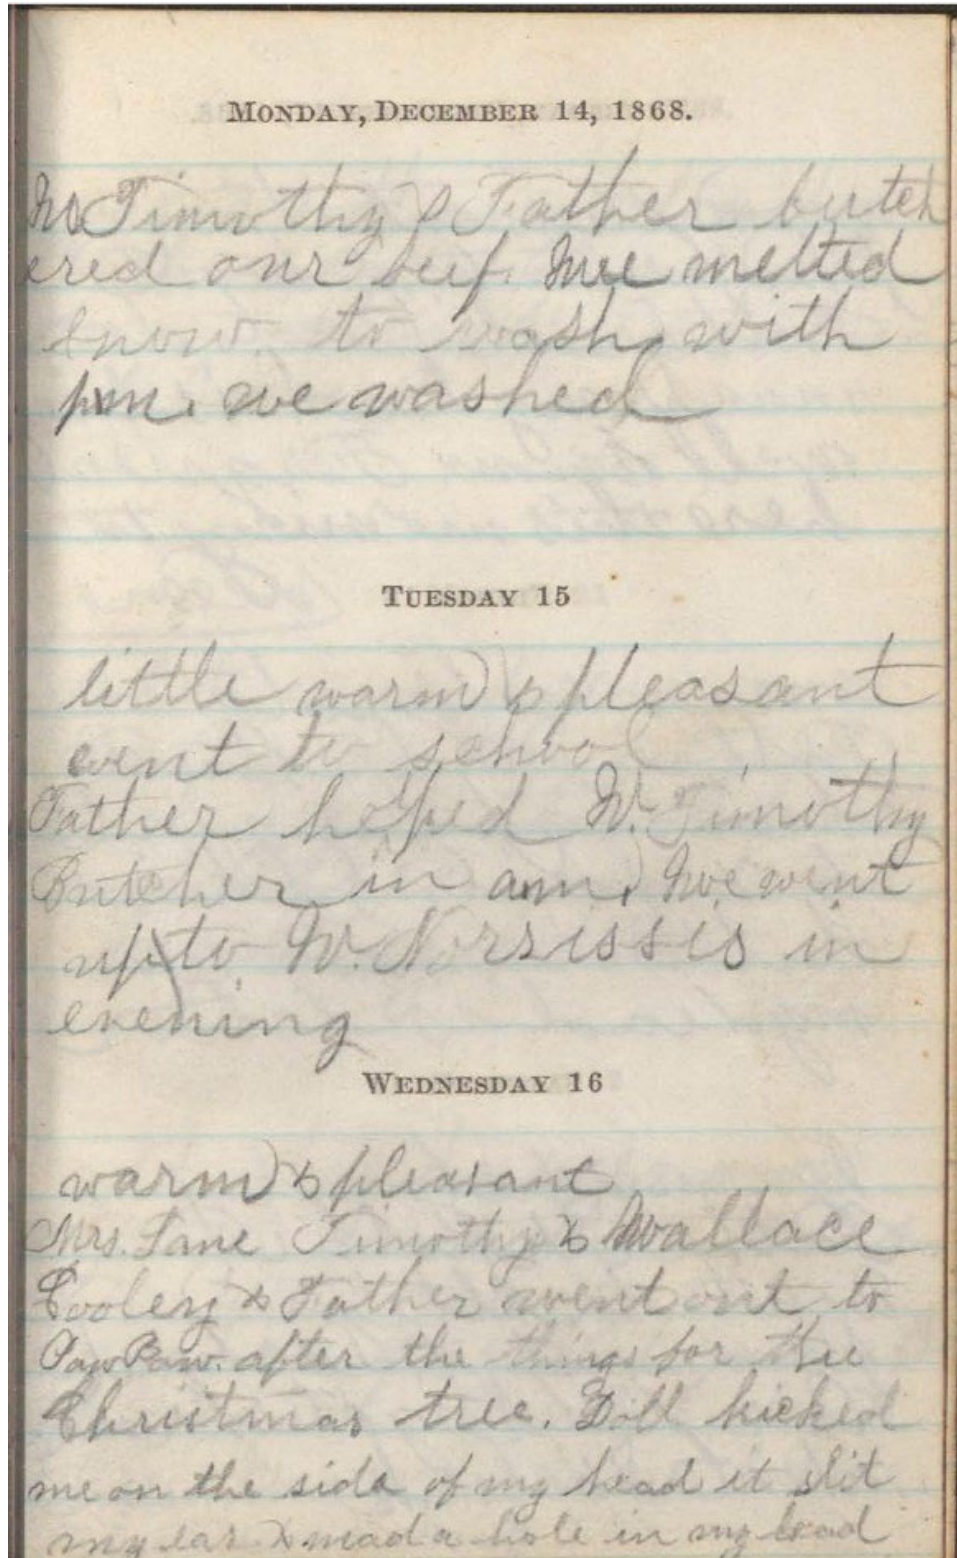 MONDAY, DECEMBER 14, 1868.
W Timothy & Father butch
ered our beef. We melted
snow to wash with
pm. we washed
TUESDAY 15
little warm & pleasant
went to school
Father helped W. Timothy
Butcher in am. we went
up to W. Norrissis in
evening
WEDNESDAY 16
warm & pleasant
Mrs. Lane Timothy & Wallace
Cooley & Father went out to
Paw Paw. after the things for the
Christmas tree. Doll kicked
me on the side of my head it slit
my ear & mad a hole in my head